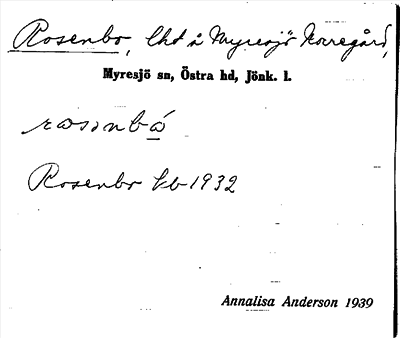 Rosenbo, lhd å Myresjö Norregård,
Myresjö sn, Östra hd, Jönk. l.
Rosenbo kb 1932
Annalisa Anderson 1939